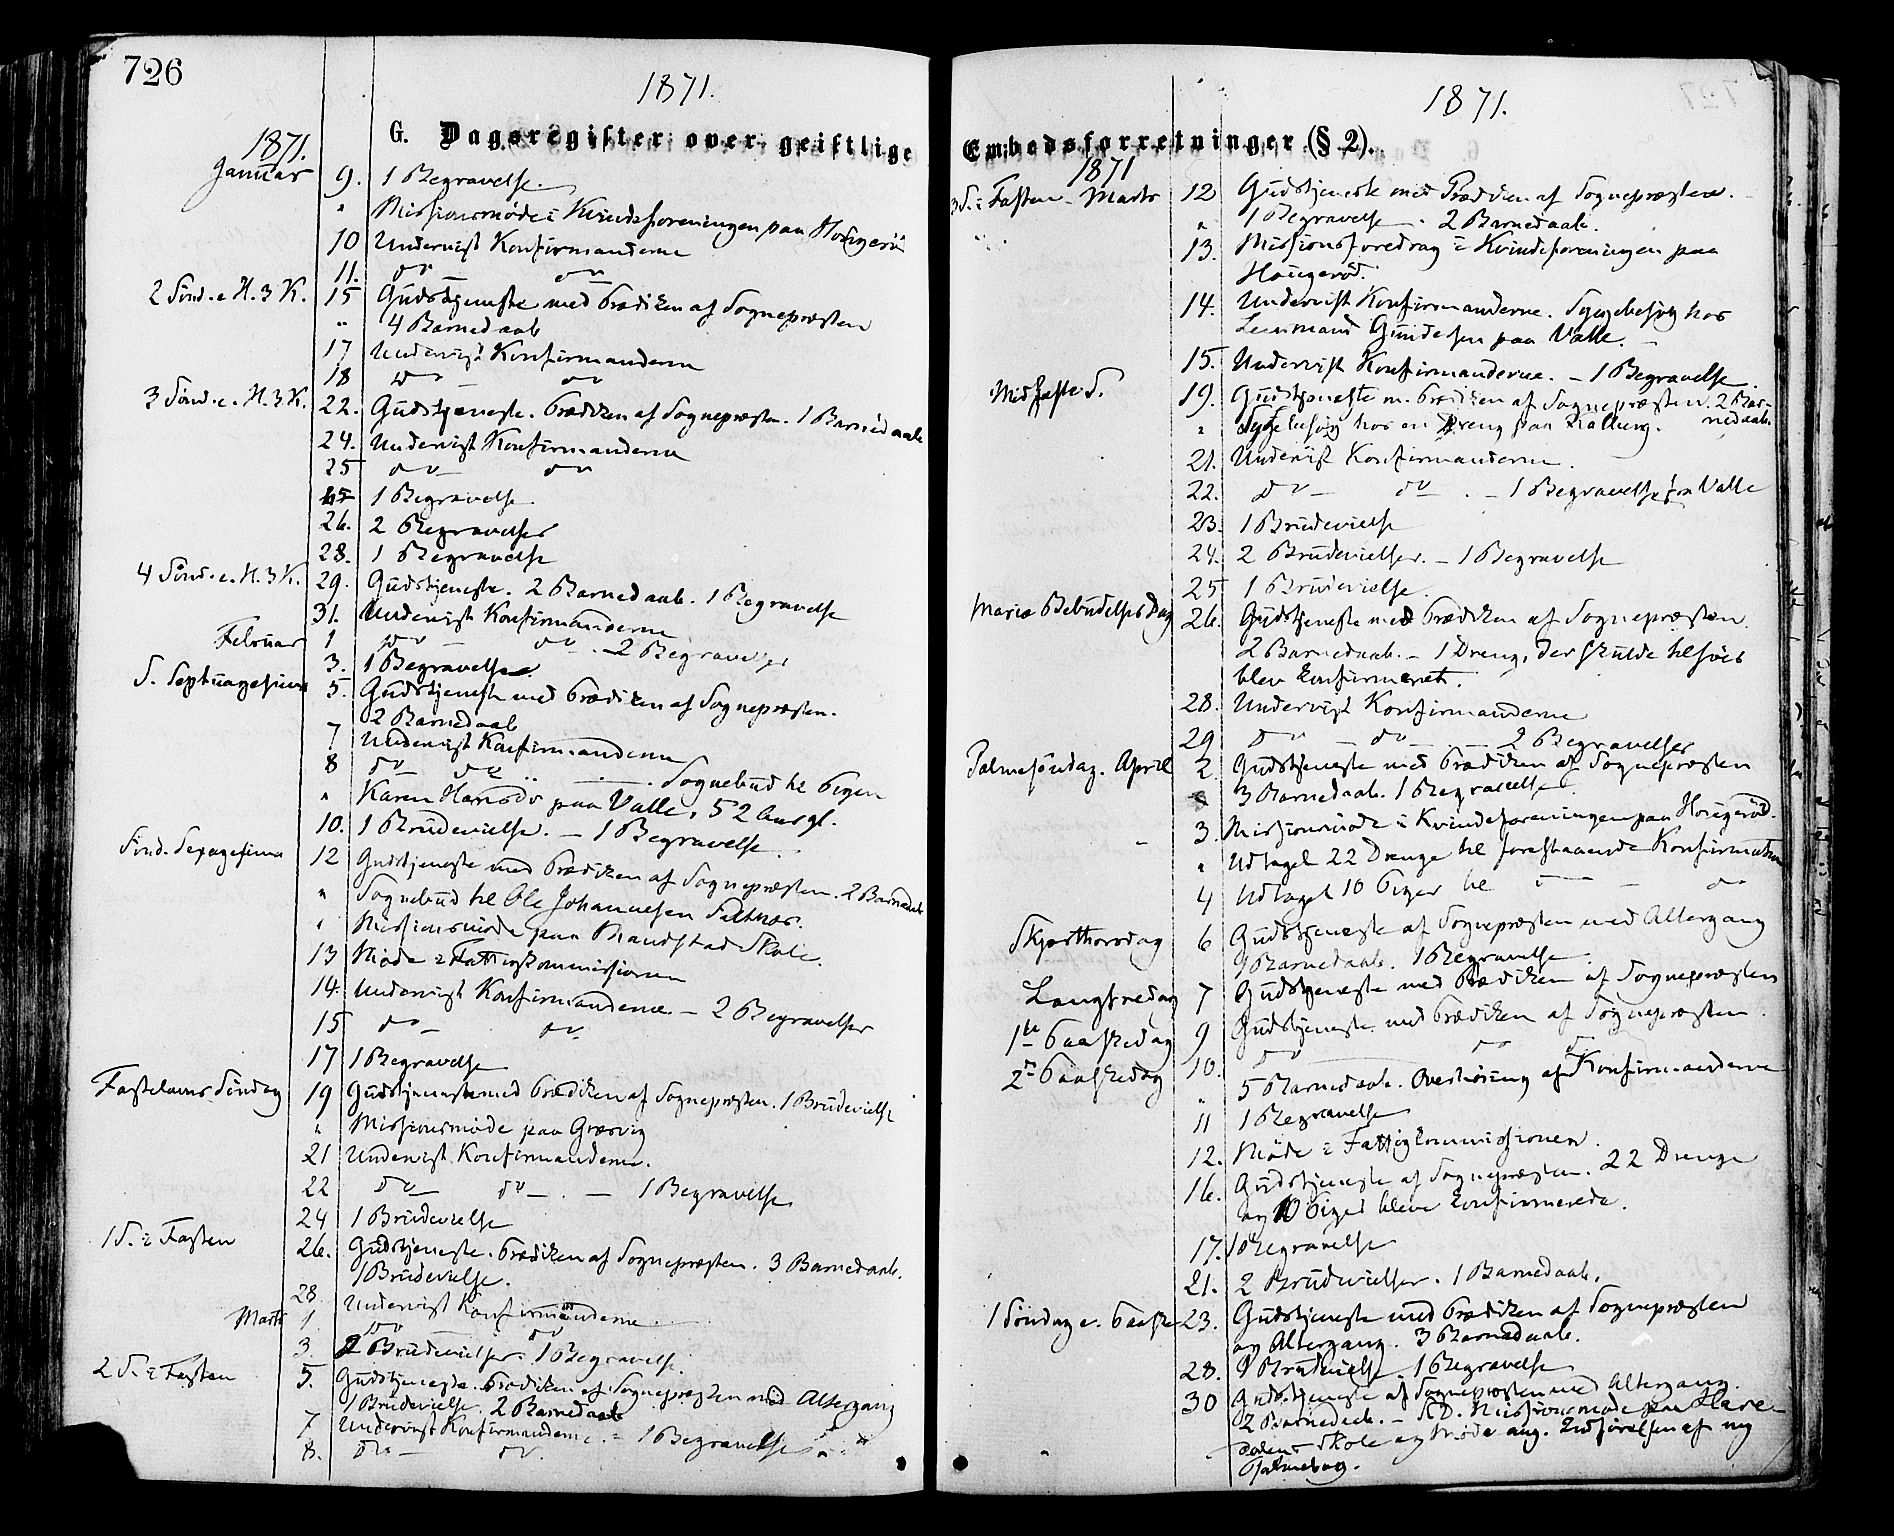 726
1871.
G. Dagsregister over geistlige
1871.
Januar 9. 1 Begravelse.
" Missionsmøde i Kvindeforeningen paa Houge
10 Undervist Konfirmanderne
11. do do
2 Sönd. e. H. 3 K. 15 Gudstjeneste med Prædiken af Sognepræsten
" 4 Barnedaab
17 Undervist Konfirmanderne
18 do do
3 Sönd. e. H. 3 K. 22. Gudstjeneste. Prædiken af Sognepræsten. 1 Barnedaab
24. Undervist Konfirmanderne
25 do do
1 Begravelse.
26. 2 Begravelser
28. 1 Begravelse
4 Sönd. e. H. 3 K. 29. Gudstjeneste. 2 Barnedaab. 1 Begravelse
31. Undervist Konfirmanderne
Februar 1 do do. - 2 Begravelser
3. 1 Begravelse.
S. Septuagesima 5. Gudstjeneste med Prædiken af Sognepræsten.
2 Barnedaab
7 Undervist Konfirmanderne
8 do do Sognebud til Pigen
" Karen Hansdr paa Valle, 52 Aar gl.
10. 1 Brudevielse. - 1 Begravelse.
Sönd. Sexagesima 12 Gudstjeneste med Prædiken af Sognepræsten. 2 Barnedaab
" Sognebud til Ole Johannesen
" Missionsmøde paa Skole.
13 Møde i Fattigkommissionen
14. Undervist Konfirmanderne. - 2 Begravelser
15 do - do.
17 1 Begravelse
Fastelavns Söndag 19 Gudstjeneste med Prædiken af Sognepræsten. 1 Brudevielse
" Missionsmøde paa Græsvig
21 Undervist Konfirmanderne.
22 do do. - 1 Begravelse
24 1 Brudevielse
1 S. i Fasten 26. Gudstjeneste. Prædiken af Sognepræsten. 3 Barnedaab.
1 Brudevielse.
28. Undervist Konfirmanderne
Marts 1. do do
3. 2 Brudevielser. 1 Begravelse.
2 S. i Fasten 5. Gudstjeneste. Prædiken af Sognepræsten med Altergang
1 Brudevielse. 2 Barnedaab
7 Undervist Konfirmanderne. - 1 Begravelse
8. do - do.
1871.
Embedsforretninger (§ 2).
1871
3 S. i Fasten - Marts 12 Gudstjeneste med Prædiken af Sognepræsten.
" 1 Begravelse. 2 Barnedaab.
13. Missionsforedrag i Kvindeforeningen paa
Hougeröd.
14. Undervist Konfirmanderne. Sygebesög hos
Lensmand Gundesen paa Valle. -
15. Undervist Konfirmanderne. - 1 Begravelse.
Midfaste S. 19. Gudstjeneste m. Prædiken af Sognepræsten. 2 Bar-
nedaab.
" Sygebesög hos en Dreng paa
21. Undervist Konfirmanderne.
22. do - do. - 1 Begravelse fra Valle
23. 1 Brudevielse
24. 2 Brudevielser. - 1 Begravelse
25 1 Brudevielse.
Mariæ Bebudelses Dag 26. Gudstjeneste med Prædiken af Sognepræsten.
2 Barnedaab. - 1 Dreng, der skulde tilsöes
blev konfirmeret.
28. Undervist Konfirmanderne
29 do do 2 Begravelser
Palmesöndag. April 2. Gudstjeneste med Prædiken af Sognepræsten
" 3 Barnedaab. 1 Begravelse.
3. Missionsmøde i Kvindeforeningen paa Hougeröd.
" Udtaget 22 Drenge til forestaaende Konfirmation
4 Udtaget 10 Piger til do
Skjærthorsdag 6 Gudstjeneste af Sognepræsten med Altergang
Barnedaab. 1 Begravelse.
Langfredag 7 Gudstjeneste med Prædiken af Sognepræsten
1ste Paaskedag 9 Gudstjeneste med Prædiken af Sognepræsten.
2den Paaskedag 10. do do do
" 5 Barnedaab. Overhöring af Konfirmanderne
11 1 Begravelse
12. Møde i Fattigkommissionen.
16. Gudstjeneste af Sognepræsten. 22 Drenge
og 10 Piger bleve konfirmerede.
17. 1 Begravelse
21. 2 Brudevielser. 1 Barnedaab.
1 Söndag e. Paaske 23. Gudstjeneste med Prædiken af Sognepræsten
og Altergang. 3 Barnedaab.
28. Brudevielse. 1 Begravelse
30 Gudstjeneste af Sognepræsten med Altergang.
2 Barnedaab. - Missionsmøde paa Hare-
Skole og Møde ang. Indförelsen af ny
Psalmebog.